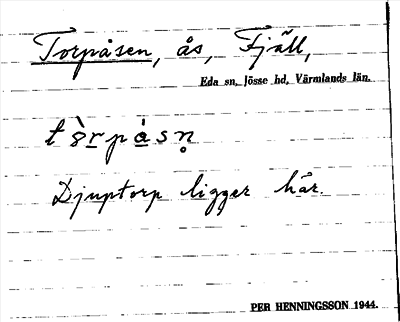 Torpåsen, ås, Fjäll,
Eda sn, Jösse hd, Värmlands län.
Djuptorp ligger här.
PER HENNINGSSON 1944.